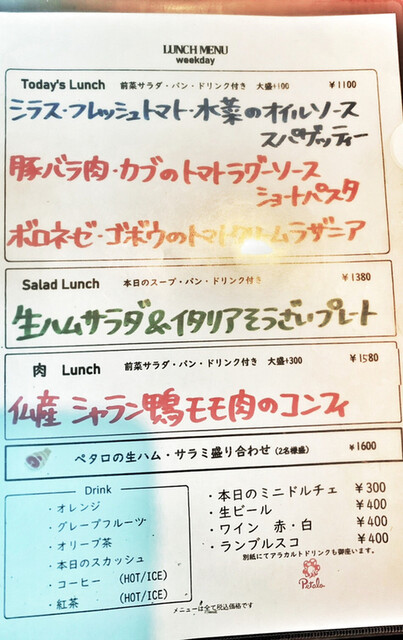 LUNCH MENU
weekday
Today's Lunch 前菜サラダ・パン・ドリンク付き 大盛+100 ¥1100
シラス・フレッシュトマト・水菜のオイルソース
スパゲッティー
豚バラ肉・カブのトマトラグーソース
ショートパスタ
ボロネーゼ・ゴボウのトマトクリームラザニア
Salad Lunch 本日のスープ・パン・ドリンク付き ¥1380
生ハムサラダ&イタリアそうざいプレート
肉 Lunch 前菜サラダ・パン・ドリンク付き 大盛+300 ¥1580
仏産 シャラン鴨モモ肉のコンフィ
ペタロの生ハム・サラミ盛り合わせ(2名様盛) ¥1600
Drink
・オレンジ
・グレープフルーツ
・オリーブ茶
・本日のスカッシュ
・コーヒー (HOT/ICE)
・紅茶 (HOT/ICE)
・本日のミニドルチェ ¥300
・生ビール ¥400
・ワイン 赤・白 ¥400
・ランブルスコ ¥400
別紙にてアラカルトドリンクも御座います。
Petalo
メニューは全て税込価格です